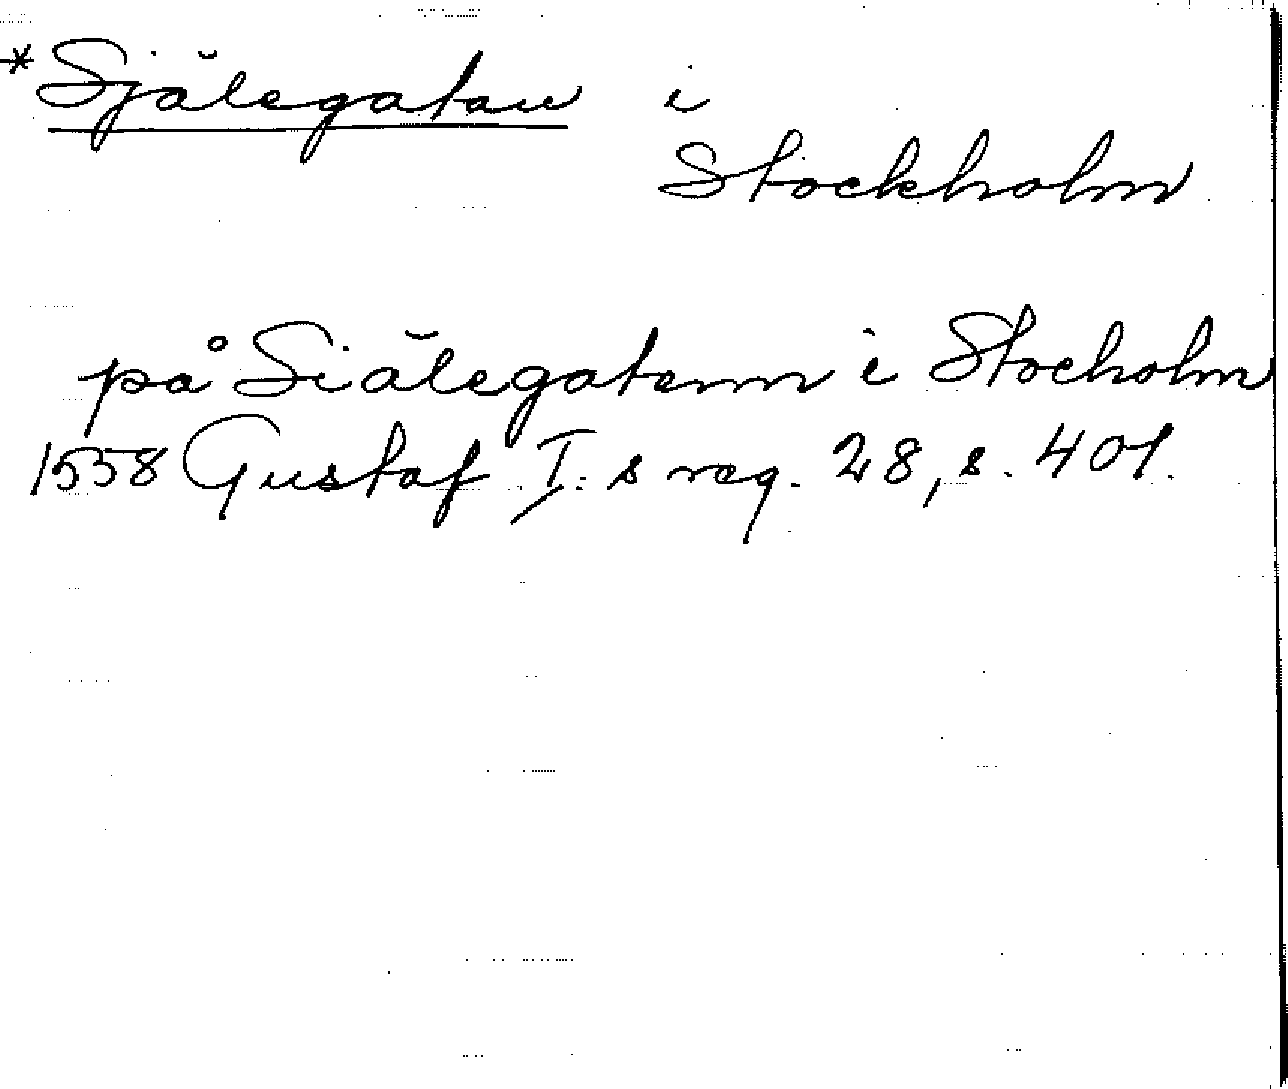 *Själegatan i
Stockholm
på Siälegatenn i Stocholm
1558 Gustaf I: s reg. 28, s. 401.